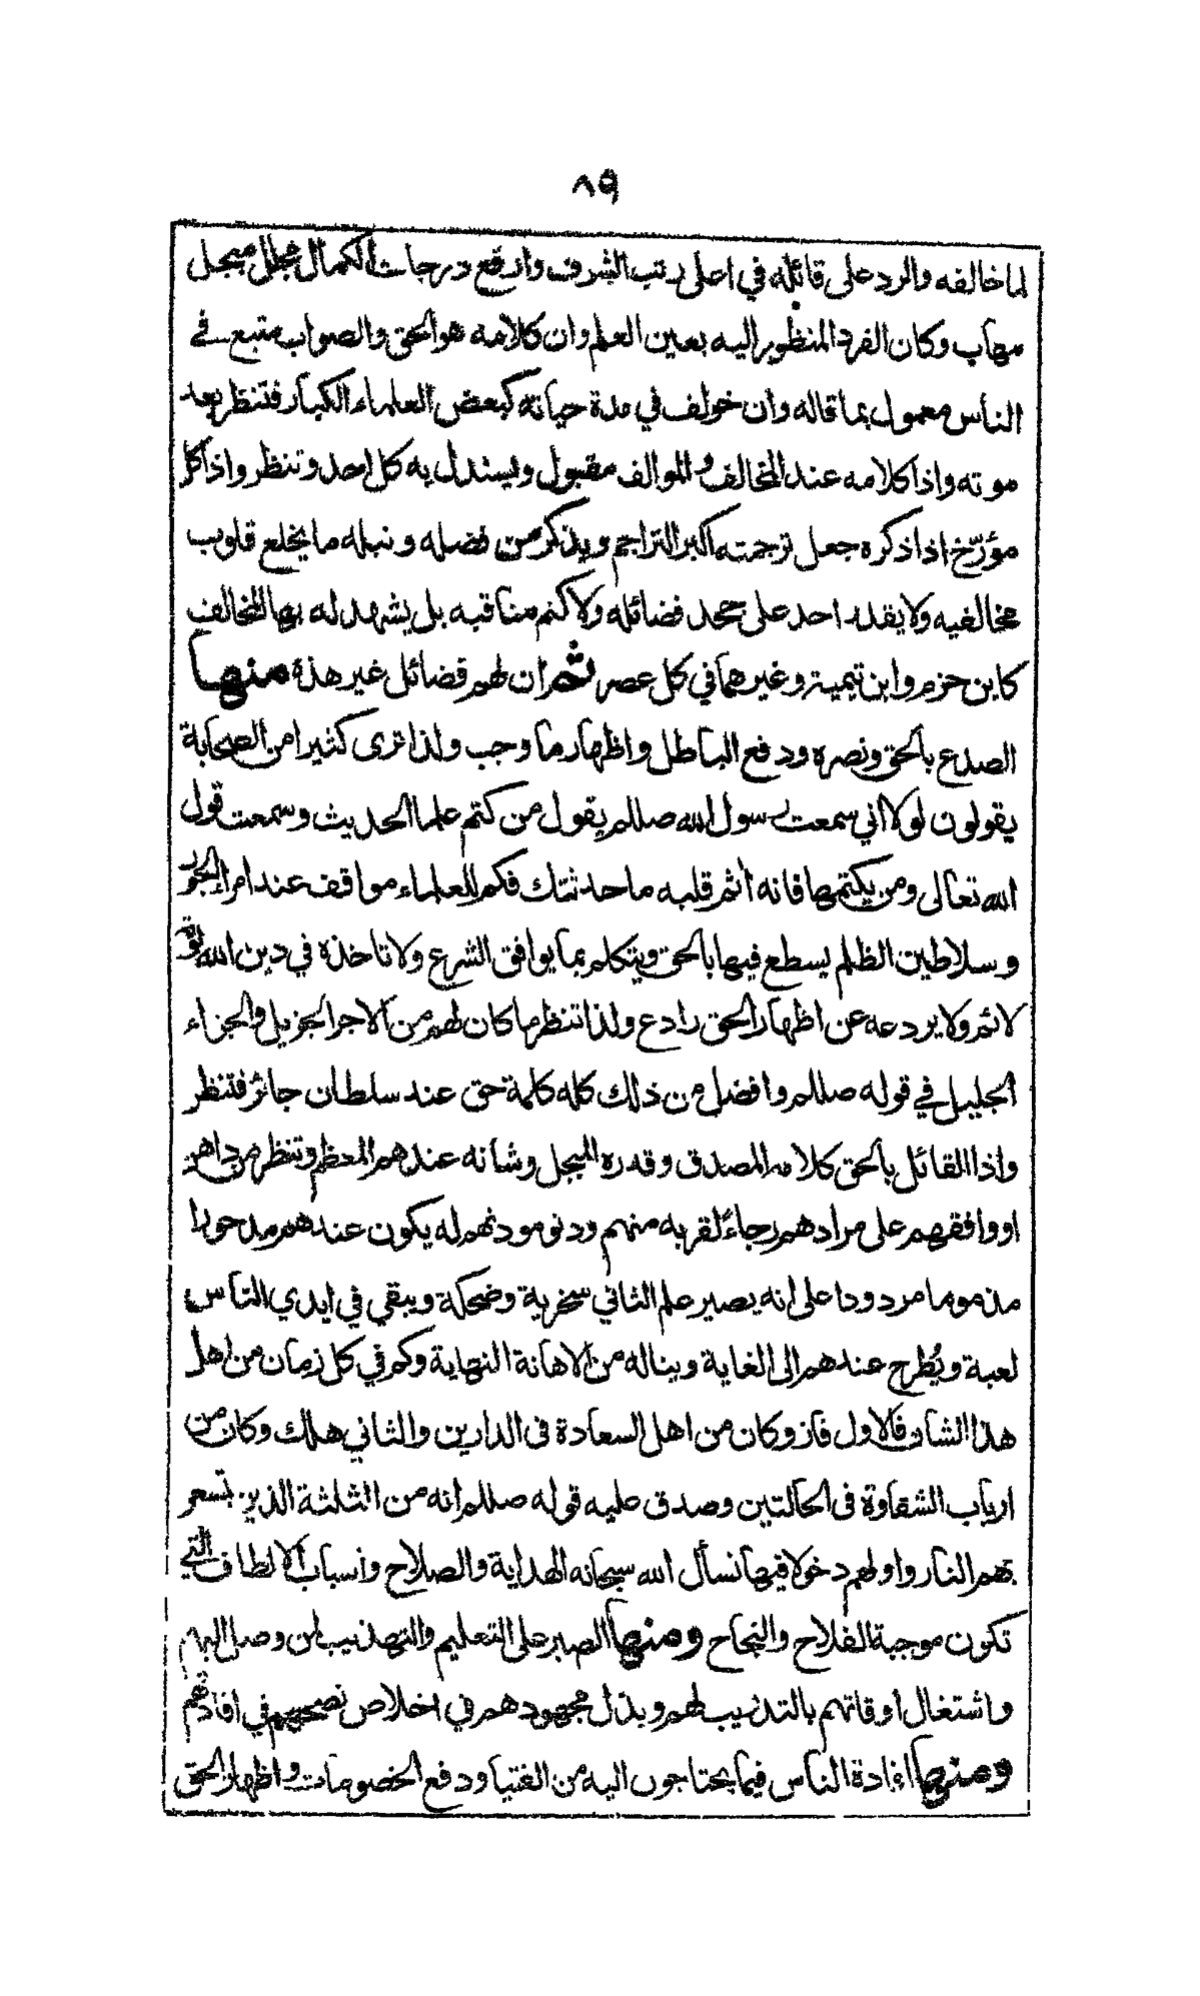 ٨٩
لما خالفه والرد على قائله في اعلى رتب الشرف وارفع درجات الكمال مجلل مبجل
مهاب وكان الفرد المنظور اليه بعين العلم وان كلامه هو الحق والصواب متبع في
الناس معمول بما قاله وان خولف في مدة حياته كبعض العلماء الكبار فتنظر بعد
موته واذا كلامه عند المخالف والموالف مقبول ويستدل به كل احد وتنظر واذا كل
مؤرّخ اذا ذكره جعل ترجمته اكبر التراجم ويذكر من فضله ونبله ما يخلع قلوب
مخالفيه ولا يقدر احد على جحد فضائله ولا كتم مناقبه بل يشهد له بها المخالف
كابن حزم وابن تيمية وغيرهما في كل عصر ثم ان لهم فضائل غير هذة منها
الصدع بالحق ونصره ودفع الباطل واظهار ما وجب ولذا ترى كثيرا من الصحابة
يقولون لولا اني سمعت رسول الله صللم يقول من كتم علما الحديث وسمعت قول
الله تعالى ومن يكتمها فانه أثم قلبه ما حدثتك فكم للعلماء مواقف عند امراء الجور
وسلاطين الظلم يسطع فيها بالحق ويتكلم بما يوافق الشرع ولا تاخذه في دين الله لومة
لائم ولا يردعه عن اظهار الحق رادع ولذا تنظر ما كان لهم من الاجر الجزيل والجزاء
الجليل في قوله صللم وافضل من ذلك كله كلمة حق عند سلطان جائر فتنظر
واذا القائل بالحق كلامه المصدق وقدره المبجل وشانه عندهم المعظم وتنظر من داهن
او وافقهم على مرادهم رجاءً لقربه منهم ودنو مودتهم له يكون عندهم مدحورا
مذموما مردودا على انه يصير علم الثاني سخرية وضحكة ويبقي في ايدي الناس
لعبة ويُطرح عندهم الى الغاية ويناله من الاهانة النهاية وكم في كل زمان من اهل
هذا الشان فالاول فاز وكان من اهل السعادة فى الدارين والثاني هلك وكان من
ارباب الشقاوة فى الحالتين وصدق عليه قوله صللم انه من الثلثة الذين تسعر
بهم النار واولهم دخولا فيها نسأل الله سبحانه الهداية والصلاح وأسباب الالطاف التي
تكون موجبة الفلاح والنجاح ومنها الصبر على التعليم والتهذيب لمن وصل اليهم
واشتغال اوقاتهم بالتدريب لهم وبذل مجهودهم في اخلاص نصحهم في افادتهم
ومنها افادة الناس فيما يحتاجون اليه من الفتيا ودفع الخصومات واظهار الحق